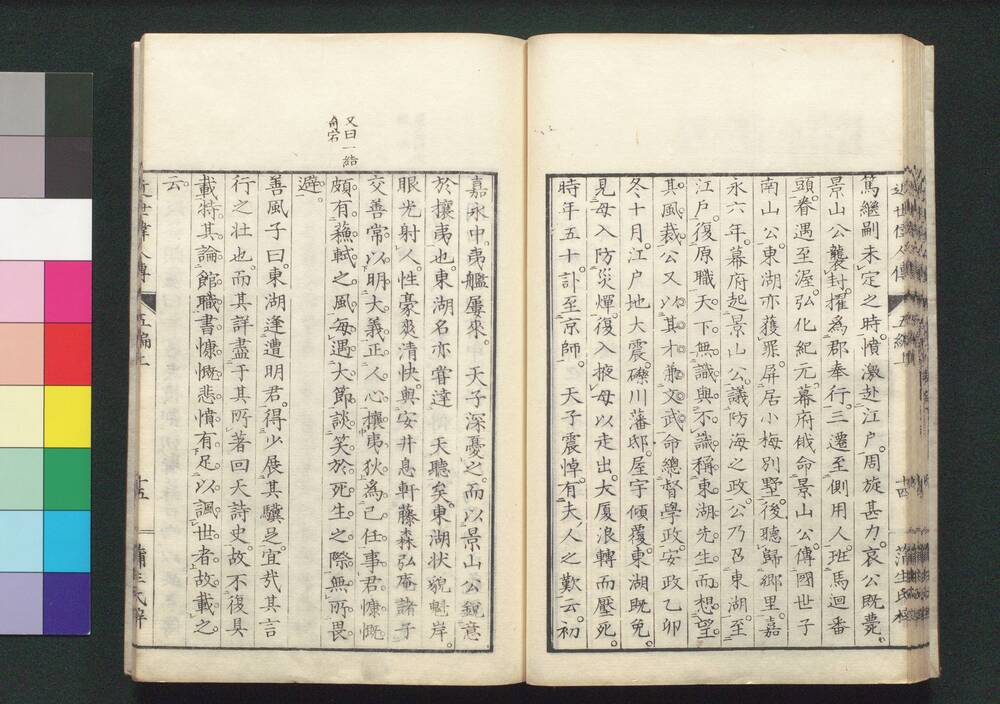 篤繼嗣未定之時。憤激赴江戸。周旋甚力。哀公既薨。
景山公襲封。擢為郡奉行。三遷至側用人。班馬迴番
頭。眷遇至渥。弘化紀元。幕府俄命景山公。傳國世子
南山公。東湖亦獲罪。屏居小梅別墅。後聽歸郷里。嘉
永六年。幕府起景山公。議防海之政。公乃召東湖。至
江戸。復原職。天下無識與不識。稱東湖先生。而想望
其風裁。公又以其才兼文武。命總督學政。安政乙卯
冬十月。江戸地大震。礫川藩邸。屋宇傾覆。東湖既免。
見母入防災燀。復入掖母以走出。大厦浪轉而壓死。
時年五十訃至京師。天子震悼。有夫人之歎云。初
近世偉人傳
五編上
十四
蒲生氏梓
嘉永中。夷艦屢來。天子深憂之。而以景山公鋭意
於攘夷也。東湖名亦嘗達天聽矣。東湖状貌魁岸
眼光射人。性豪爽清快。與安井息軒藤森弘庵諸子
交善。常以明大義正人心攘夷狄為己任。事君慷慨
頗有蘓軾之風。毎遇大節。談笑於死生之際。無所畏
避。
善風子曰。東湖逢遭明君。得少展其驥足。宜哉其言
行之壮也。而其詳盡于其所著回天詩史。故不復具
載。特其論館職書。慷慨悲憤。有足以諷世者。故載之
云。
又曰一結
近世偉人傳
五編上
十五
蒲生氏梓